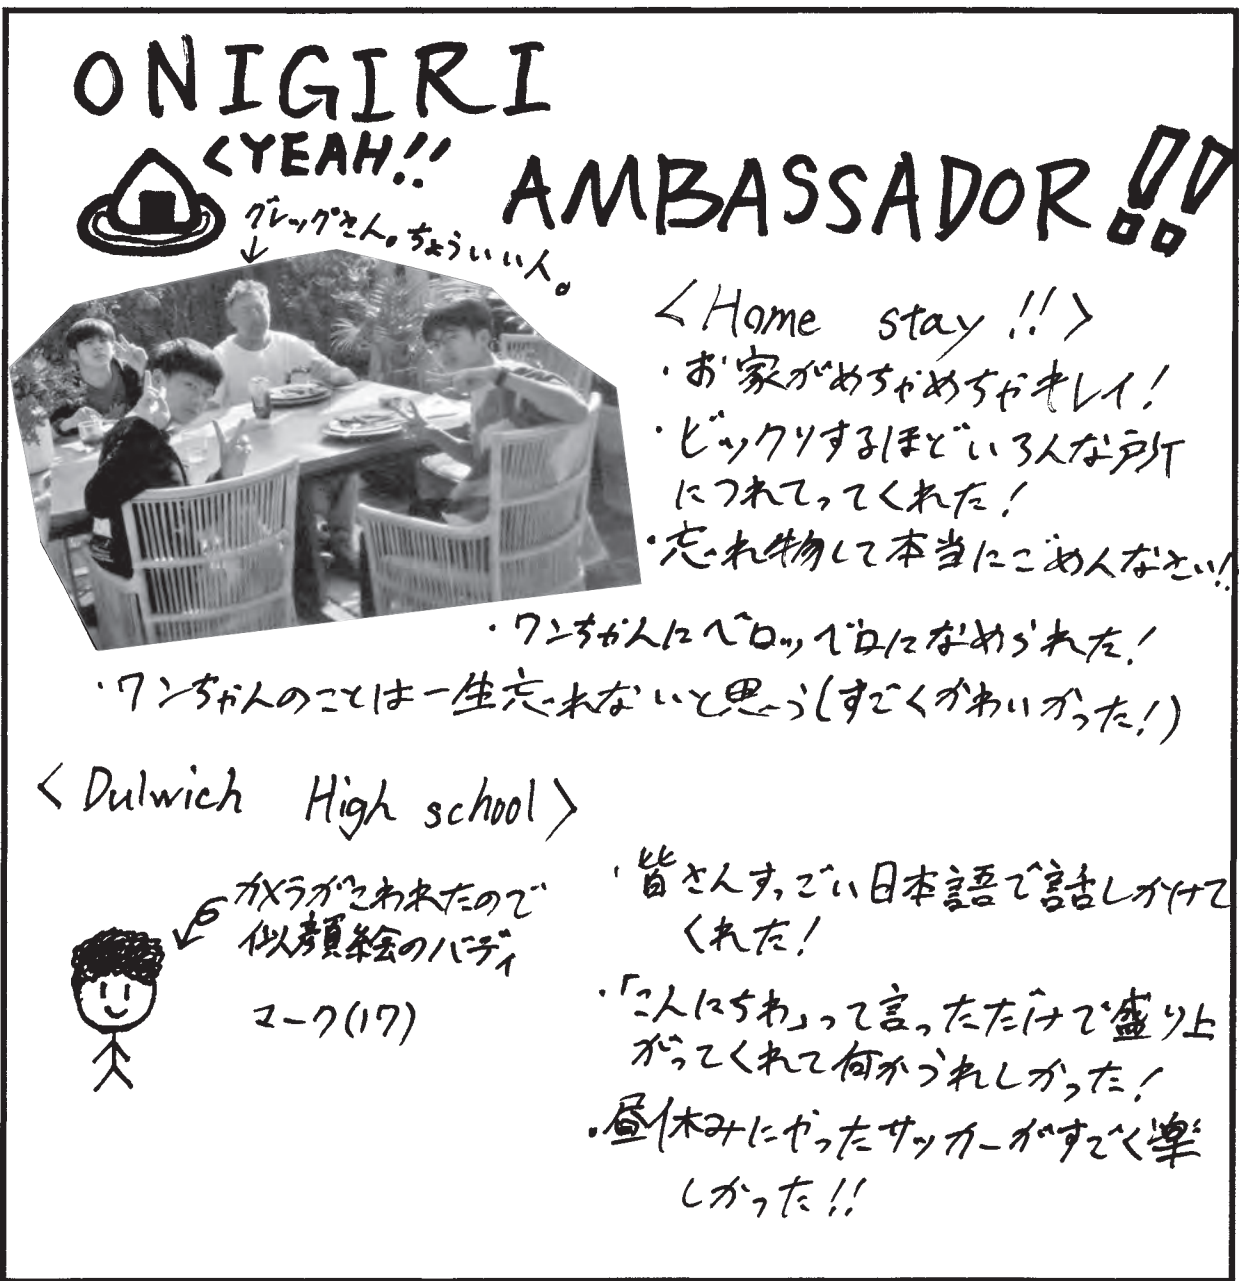 ONIGIRI
<YEAH!!
AMBASSADOR!!
グレッグさん。ちょういい人。
<Home stay!!>
・お家がめちゃめちゃキレイ!
・ビックリするほどいろんな所
につれてってくれた!
・忘れ物して本当にごめんなさい!!
・ワンちゃんにベロッベロになめられた!
・ワンちゃんのことは一生忘れないと思う(すごくかわいかった!)
<Dulwich High school>
カメラがこわれたので
似顔絵のバディ
マーク(17)
・皆さんすっごい日本語で話しかけて
くれた!
・「こんにちわ」って言っただけで盛り上
がってくれて何かうれしかった!
・昼休みにやったサッカーがすごく楽
しかった!!